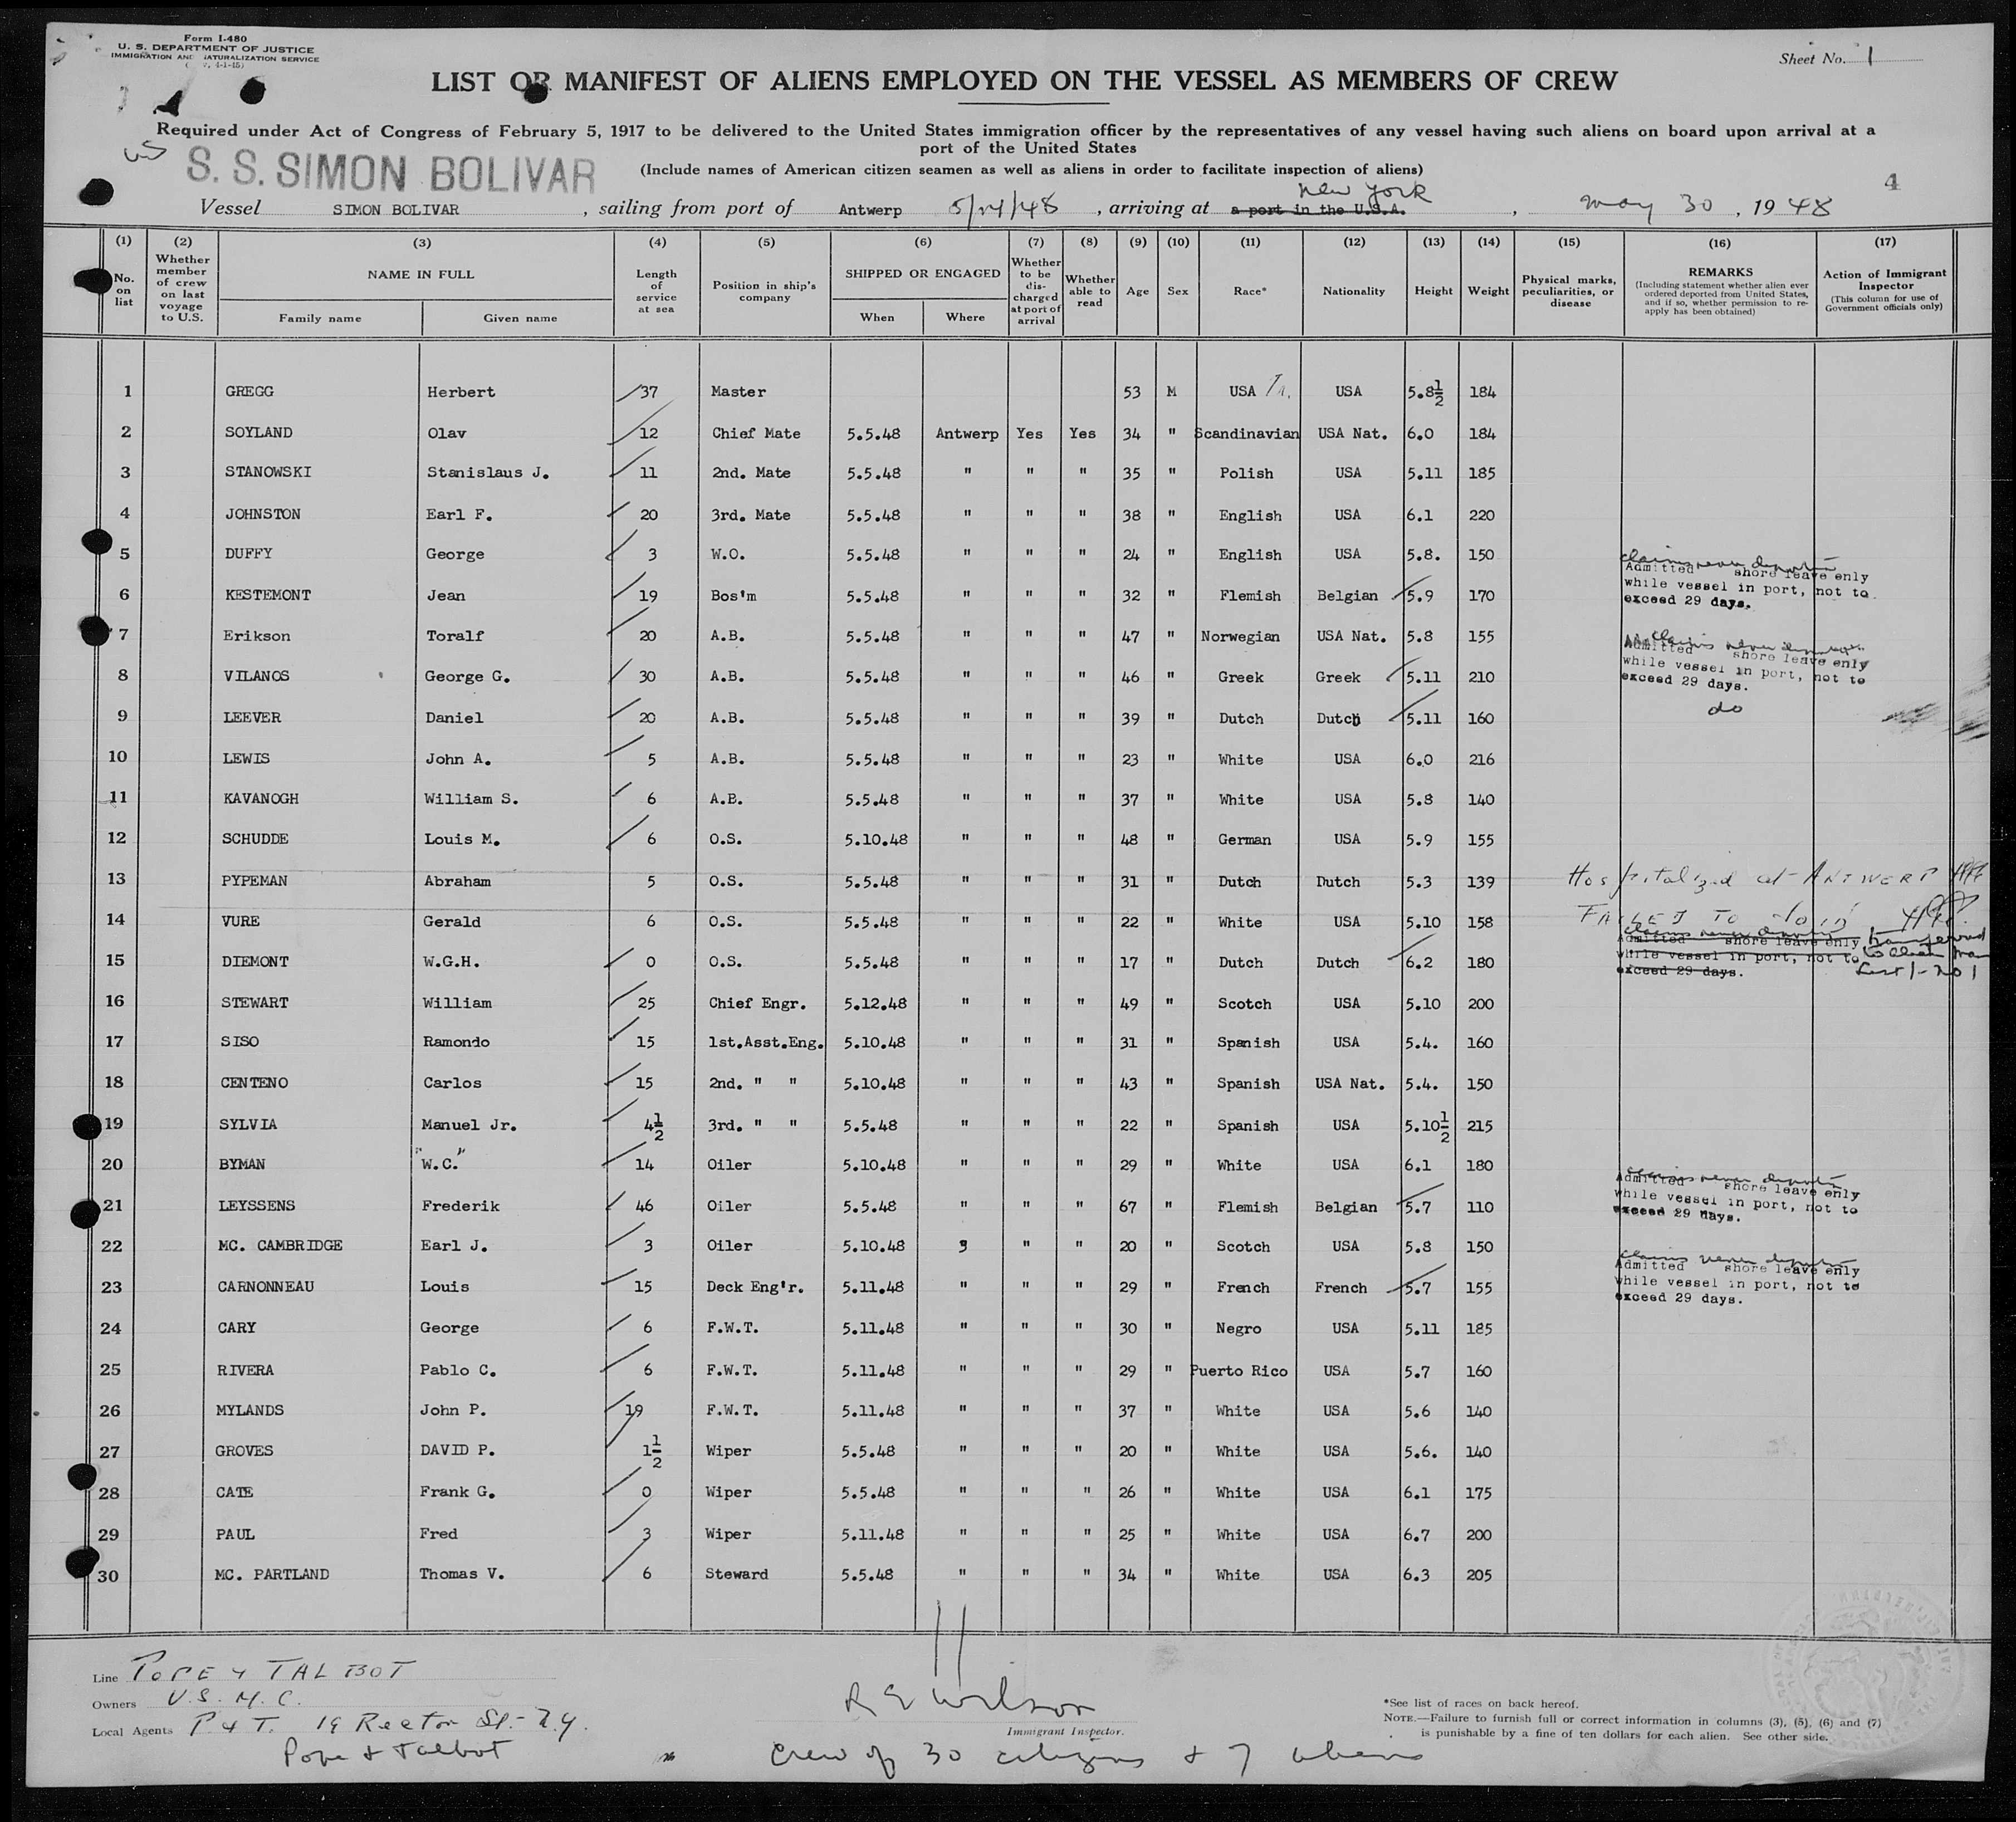 Form I-480
U. S. DEPARTMENT OF JUSTICE
IMMIGRATION AND NATURALIZATION SERVICE
Sheet No. 1
LIST OR MANIFEST OF ALIENS EMPLOYED ON THE VESSEL AS MEMBERS OF CREW
Required under Act of Congress of February 5, 1917 to be delivered to the United States immigration officer by the representatives of any vessel having such aliens on board upon arrival at a
port of the United States
S. S. SIMON BOLIVAR
(Include names of American citizen seamen as well as aliens in order to facilitate inspection of aliens)
4
Vessel SIMON BOLIVAR , sailing from port of Antwerp 5/24/48 , arriving at a port in the U.S.A. New York , May 30 , 1948
(1) (2) (3) (4) (5) (6) (7) (8) (9) (10) (11) (12) (13) (14) (15) (16) (17)
No. on list
Whether member of crew on last voyage to U.S.
NAME IN FULL
Family name Given name
Length of service at sea
Position in ship's company
SHIPPED OR ENGAGED
When Where
Whether to be discharged at port of arrival
Whether able to read
Age Sex Race* Nationality Height Weight
Physical marks, peculiarities, or disease
REMARKS
(Including statement whether alien ever ordered deported from United States, and if so, whether permission to reapply has been obtained)
Action of Immigrant Inspector
(This column for use of Government officials only)
1 GREGG Herbert 37 Master 53 M USA USA 5.8½ 184
2 SOYLAND Olav 12 Chief Mate 5.5.48 Antwerp Yes Yes 34 " Scandinavian USA Nat. 6.0 184
3 STANOWSKI Stanislaus J. 11 2nd. Mate 5.5.48 " " " 35 " Polish USA 5.11 185
4 JOHNSTON Earl F. 20 3rd. Mate 5.5.48 " " " 38 " English USA 6.1 220
5 DUFFY George 3 W.O. 5.5.48 " " " 24 " English USA 5.8. 150
6 KESTEMONT Jean 19 Bos'm 5.5.48 " " " 32 " Flemish Belgian 5.9 170 claims never deported Admitted shore leave only while vessel in port, not to exceed 29 days.
7 Erikson Toralf 20 A.B. 5.5.48 " " " 47 " Norwegian USA Nat. 5.8 155
8 VILANOS George G. 30 A.B. 5.5.48 " " " 46 " Greek Greek 5.11 210 Claims never deported Admitted shore leave only while vessel in port, not to exceed 29 days.
9 LEEVER Daniel 20 A.B. 5.5.48 " " " 39 " Dutch Dutch 5.11 160 do
10 LEWIS John A. 5 A.B. 5.5.48 " " " 23 " White USA 6.0 216
11 KAVANOGH William S. 6 A.B. 5.5.48 " " " 37 " White USA 5.8 140
12 SCHUDDE Louis M. 6 O.S. 5.10.48 " " " 48 " German USA 5.9 155
13 PYPEMAN Abraham 5 O.S. 5.5.48 " " " 31 " Dutch Dutch 5.3 139 Hospitalized at ANTWERP
14 VURE Gerald 6 O.S. 5.5.48 " " " 22 " White USA 5.10 158 FAILED TO Join
15 DIEMONT W.G.H. 0 O.S. 5.5.48 " " " 17 " Dutch Dutch 6.2 180 claims never deported Admitted shore leave only while vessel in port, not to exceed 29 days. transferred to List 1 - No 1
16 STEWART William 25 Chief Engr. 5.12.48 " " " 49 " Scotch USA 5.10 200
17 SISO Ramondo 15 1st.Asst.Eng. 5.10.48 " " " 31 " Spanish USA 5.4. 160
18 CENTENO Carlos 15 2nd. " " 5.10.48 " " " 43 " Spanish USA Nat. 5.4. 150
19 SYLVIA Manuel Jr. 4½ 3rd. " " 5.5.48 " " " 22 " Spanish USA 5.10½ 215
20 BYMAN "W.C." 14 Oiler 5.10.48 " " " 29 " White USA 6.1 180
21 LEYSSENS Frederik 46 Oiler 5.5.48 " " " 67 " Flemish Belgian 5.7 110 claims never deported Admitted shore leave only while vessel in port, not to exceed 29 days.
22 MC. CAMBRIDGE Earl J. 3 Oiler 5.10.48 " " 20 " Scotch USA 5.8 150
23 CARNONNEAU Louis 15 Deck Eng'r. 5.11.48 " " " 29 " French French 5.7 155 claims never deported Admitted shore leave only while vessel in port, not to exceed 29 days.
24 CARY George 6 F.W.T. 5.11.48 " " " 30 " Negro USA 5.11 185
25 RIVERA Pablo C. 6 F.W.T. 5.11.48 " " " 29 " Puerto Rico USA 5.7 160
26 MYLANDS John P. 19 F.W.T. 5.11.48 " " " 37 " White USA 5.6 140
27 GROVES DAVID P. 1½ Wiper 5.5.48 " " " 20 " White USA 5.6. 140
28 CATE Frank G. 0 Wiper 5.5.48 " " " 26 " White USA 6.1 175
29 PAUL Fred 3 Wiper 5.11.48 " " " 25 " White USA 6.7 200
30 MC. PARTLAND Thomas V. 6 Steward 5.5.48 " " " 34 " White USA 6.3 205
Line POPE & TALBOT
Owners U.S.M.C.
Local Agents P & T. 19 Rector St. - N.Y.
Pope & Talbot
R E Wilson
Immigrant Inspector.
Crew of 30 citizens & 7 aliens
*See list of races on back hereof.
NOTE.—Failure to furnish full or correct information in columns (3), (5), (6) and (7)
is punishable by a fine of ten dollars for each alien. See other side.